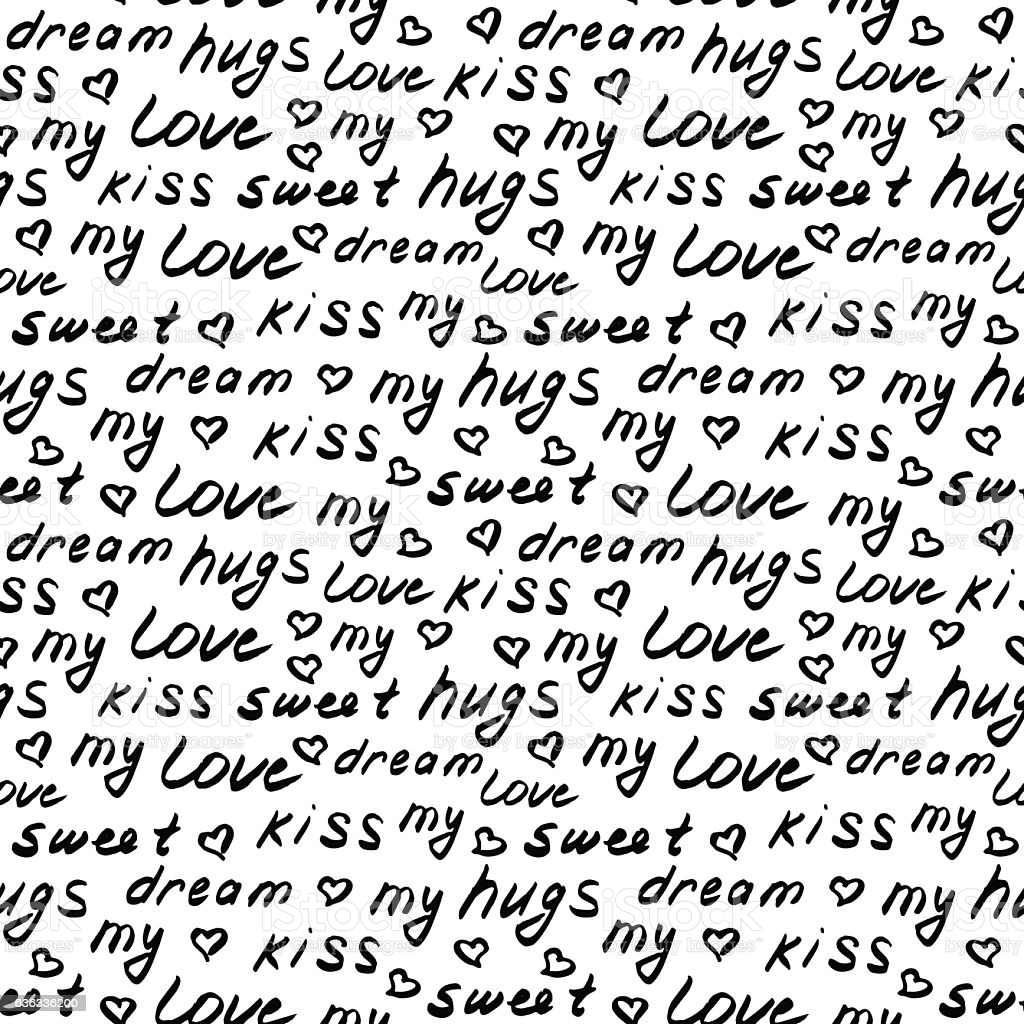 love my
dream hugs dream hugs
ss love kiss love ki
my love my my love my
gs kiss sweet hugs kiss sweet hug
my love dream my love dream
ove love lo
sweet kiss my sweet kiss my
ugs dream my hugs dream my hu
my kiss my kiss
eet love my sweet love my swe
dream hugs dream hugs
ss love kiss love ki
my love my my love my
gs kiss sweet hugs kiss sweet hug
my love dream my love dream
ove love lo
sweet kiss my sweet kiss my
ugs dream my hugs dream my hu
my kiss my kiss
eet love my sweet love my swe
iStock
by Getty Images™
636336200